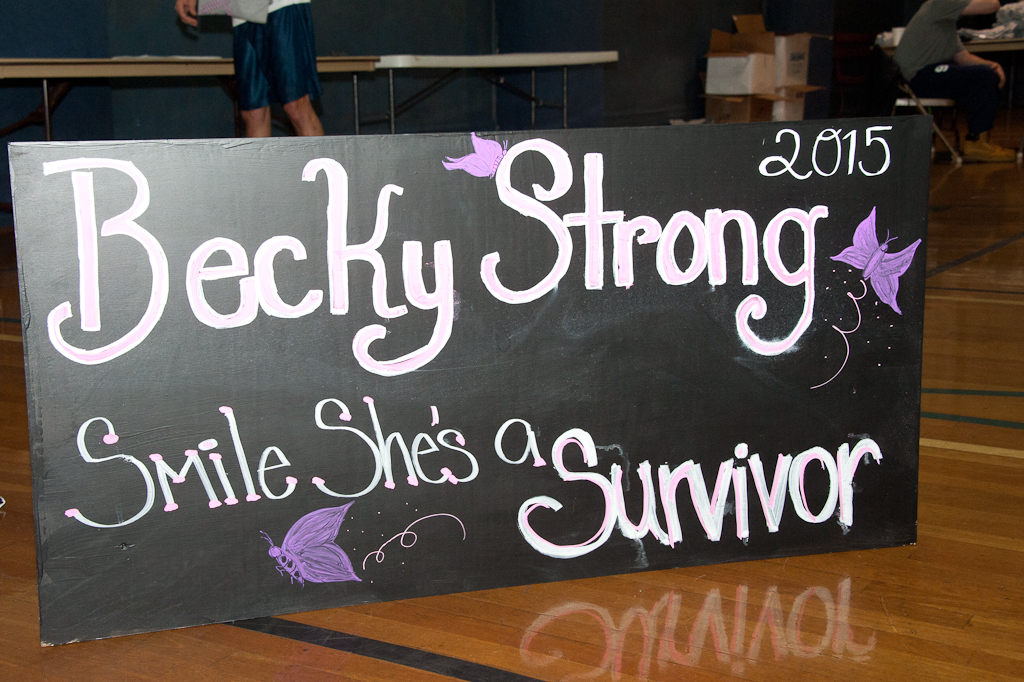 2015
Becky Strong
Smile She's a Survivor